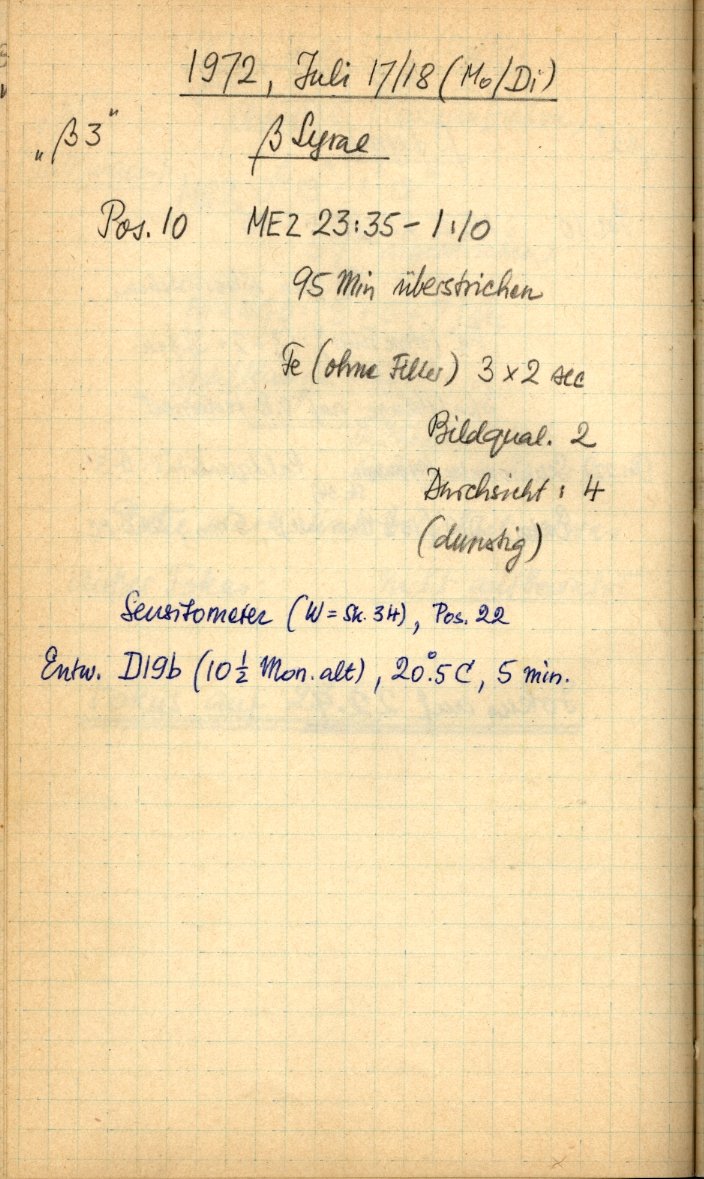 1972, Juli 17/18 (Mo/Di)
„β3“ β Lyrae
Pos. 10 MEZ 23:35 – 1:10
95 Min überstrichen
Fe (ohne Filter) 3 x 2 sec
Bildqual. 2
Durchsicht: 4
(dunstig)
Sensitometer (W = Sk. 34), Pos. 22
Entw. D19b (10 ½ Mon. alt), 20°.5 C, 5 min.